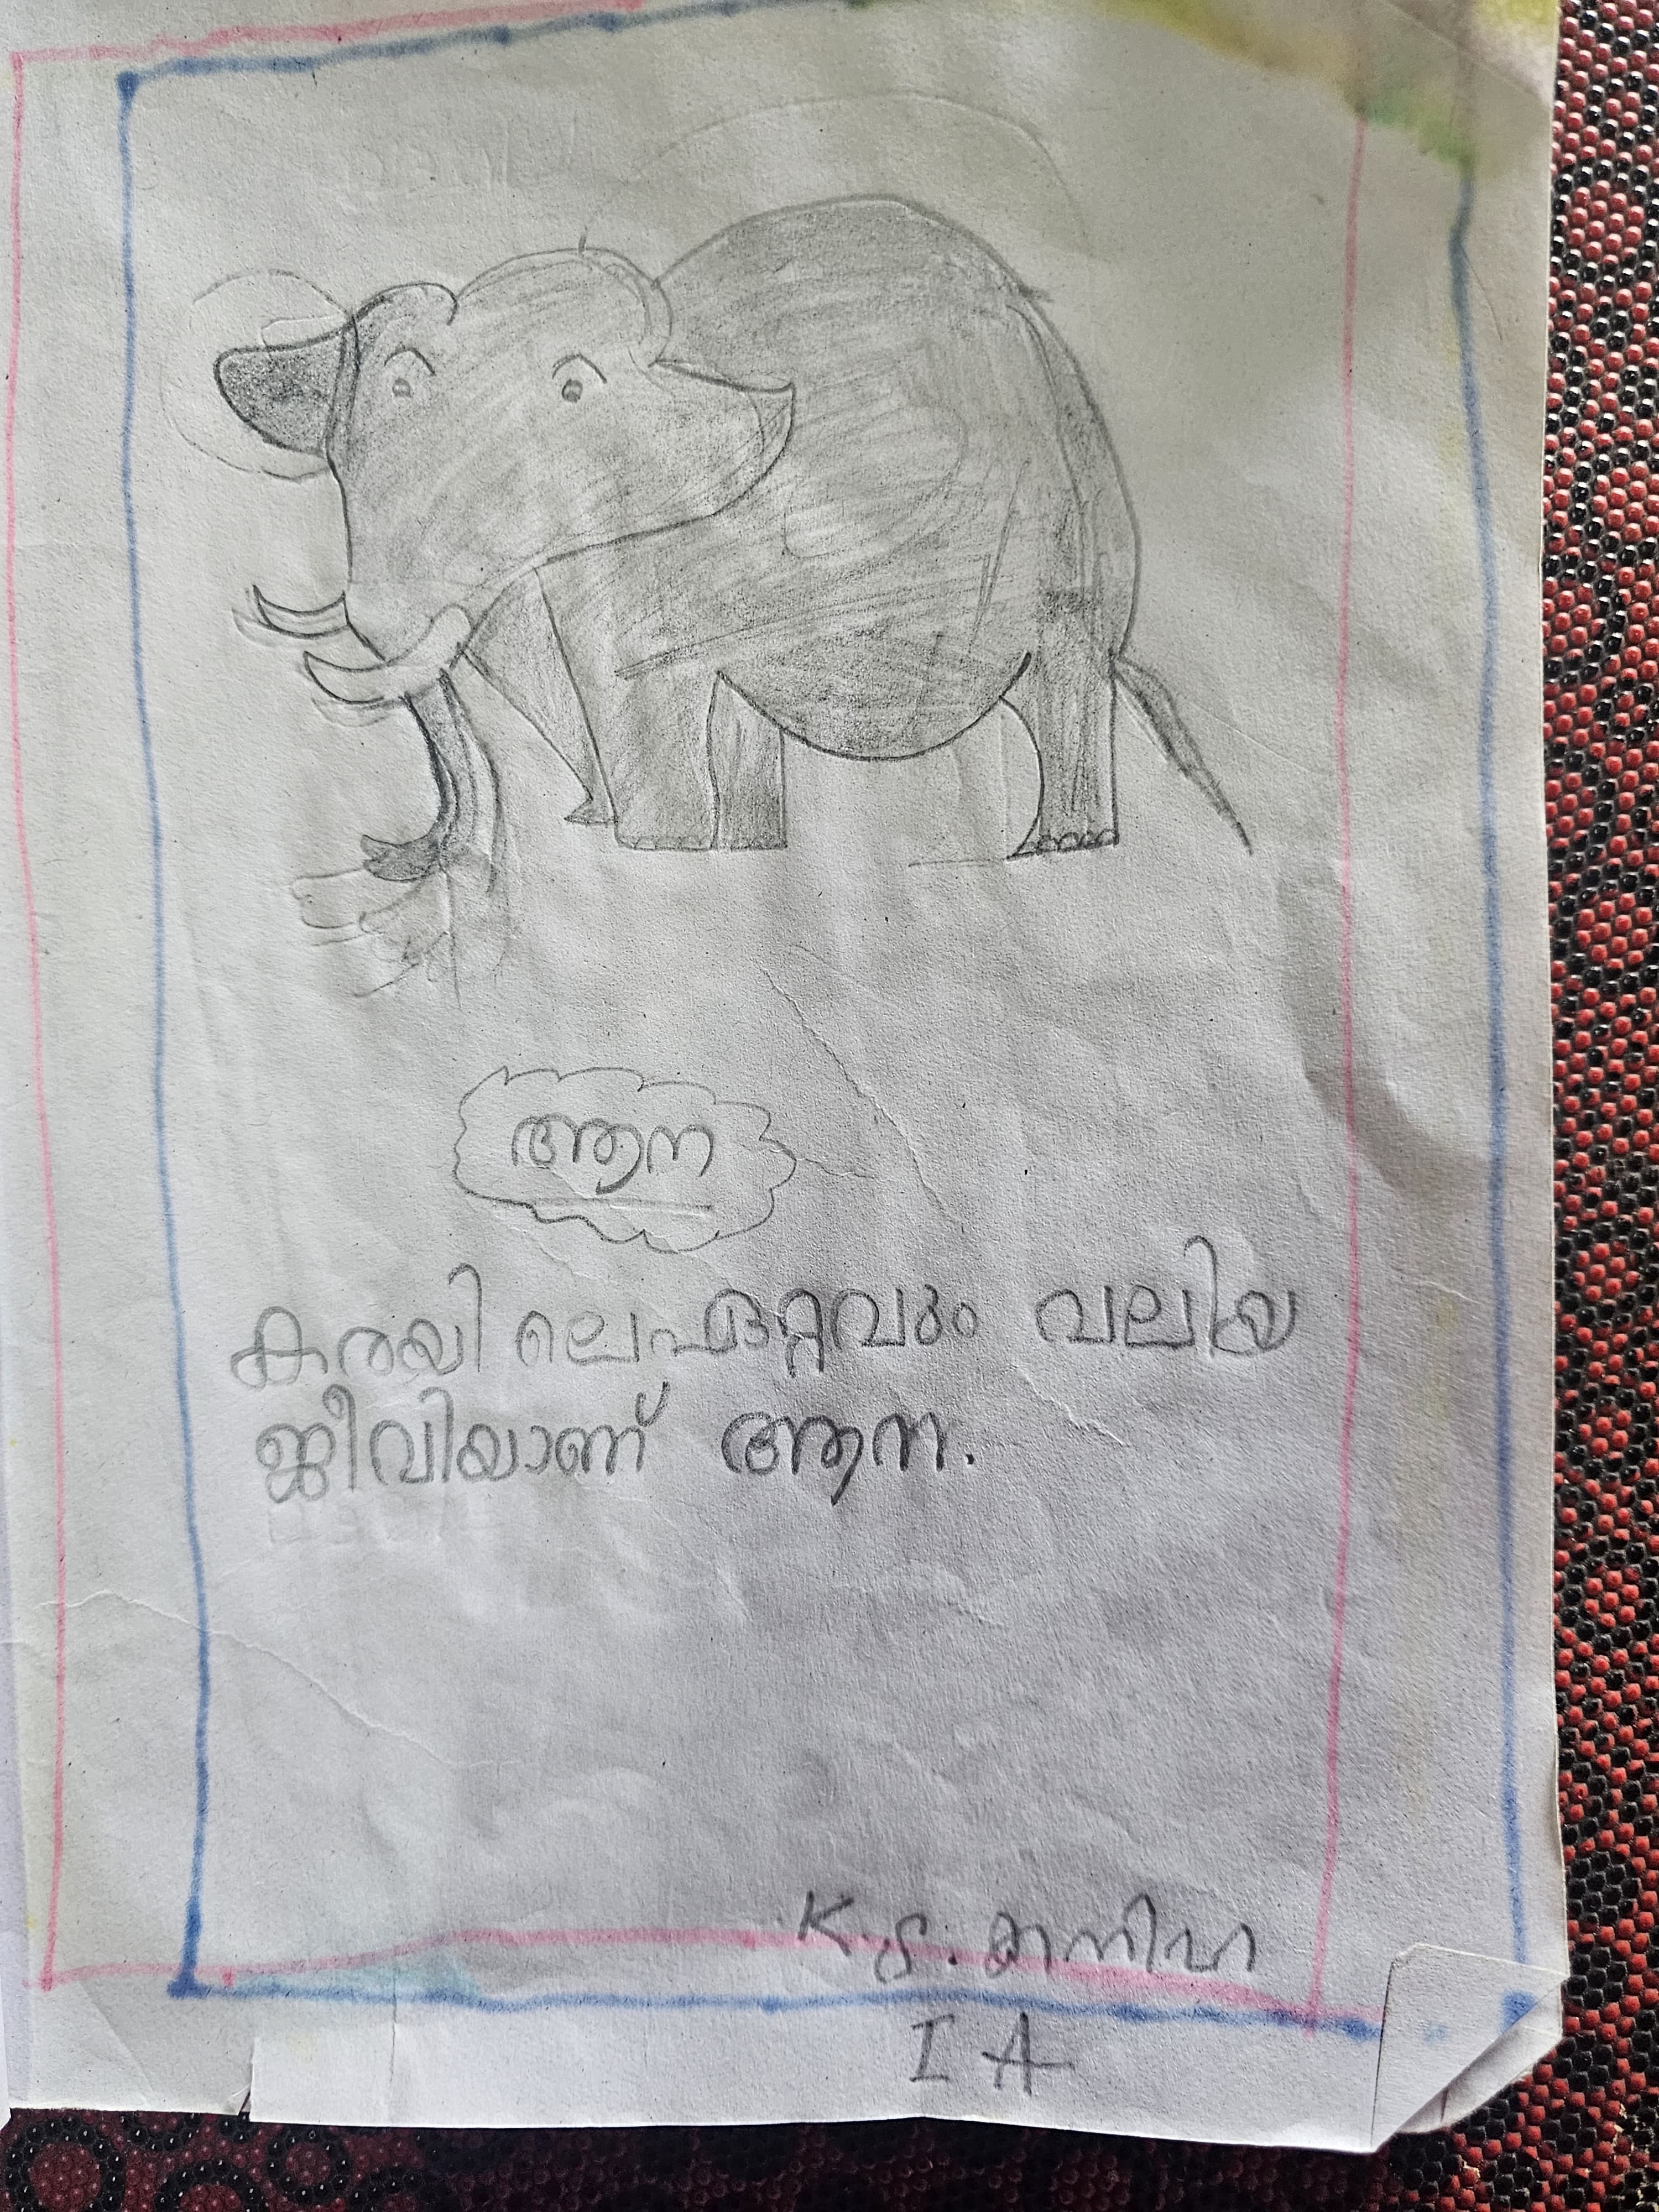 ആന
കരയിലെഏറ്റവും വലിയ
ജീവിയാണ് ആന.
K.S.
I A